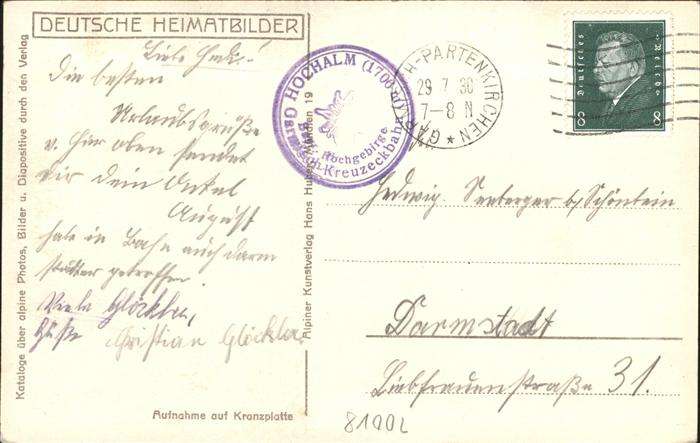 DEUTSCHE HEIMATBILDER
Liebe Hedi!
Die besten
Urlaubsgrüße
v. hier oben sendet
dir dein Onkel
August
habe in Bahn auch darm
städter getroffen
Viele
Grüße
Christian Glöckler
Kataloge über alpine Photos, Bilder u. Diapositive durch den Verlag
Aufnahme auf Kranzplatte
Alpiner Kunstverlag Hans Huber, München 19
HOCHALM (1700 m)
Hochgebirge
Kreuzeckbahn
GARMISCH-PARTENKIRCHEN
29 7 30
7-8 N
Deutsches Reich
8 8
Hedwig Seeberger b/ Schönbein
Darmstadt
Liebfrauenstraße 31.